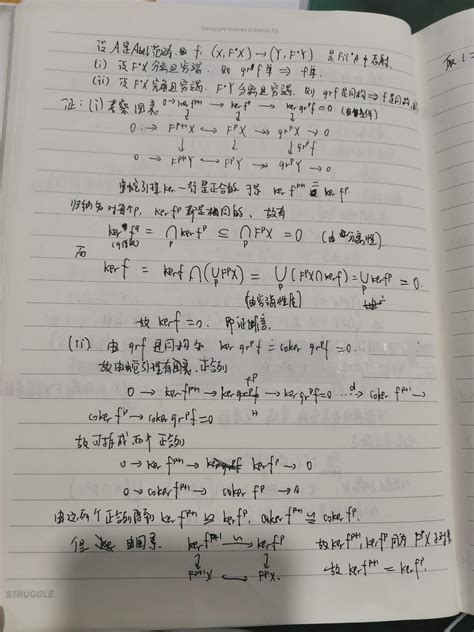 Struggle makes dreams fly
设 A 是 Abel 范畴, f: (X, F^•X) → (Y, F^•Y) 是 Fil^•A 中态射.
(i) 设 F^•X 分离且穷竭, 则 gr^•f 单 ⇒ f 单.
(ii) 设 F^•X 完备且穷竭, F^•Y 分离且穷竭, 则 grf 是同构 ⇒ f 是同构
证: (i) 考察图表 0→ker f^{p+1} → ker f^p → ker gr^p f = 0
0 → F^{p+1}X → F^pX → gr^pX → 0
↓ ↓ ↓ gr^pf
0 → F^{p+1}Y → F^pY → gr^pY → 0
由蛇引理 ker 一行是正合的 于是 ker f^{p+1} = ker f^p
归纳知对每个p, ker f^p 都是相同的, 故有
ker f^p = ∩_p ker f^p ⊆ ∩_p F^pX = 0 (由分离性)
而
ker f = ker f ∩ (∪_p F^pX) = ∪_p (F^pX ∩ ker f) = ∪_p ker f^p = 0.
(由穷竭性质)
故 ker f = 0. 即证断言.
(ii) 由 grf 是同构知 ker gr^pf = coker gr^pf = 0.
故由蛇引理有图表正合列
0 → ker f^{p+1} → ker f^p → ker gr^pf = 0 →^d coker f^{p+1} →
coker f^p → coker gr^pf = 0
故可拆成两个正合列
0 → ker f^{p+1} → ker f^p → 0
0 → coker f^{p+1} → coker f^p → 0
由这两个正合列得到 ker f^{p+1} ≅ ker f^p, coker f^{p+1} ≅ coker f^p.
但 ker 由图表 ker f^{p+1} → ker f^p 故 ker f^{p+1}, ker f^p 同为 F^pX 子对象
↓ ↓
F^{p+1}X → F^pX. 故 ker f^{p+1} = ker f^p.
STRUGGLE